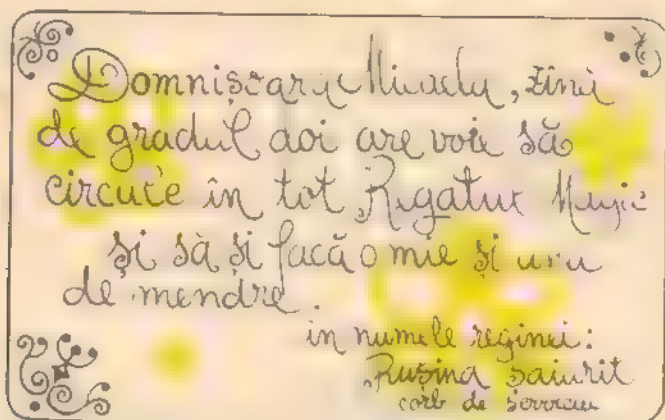 Domnișoara Micaela, zână
de gradul doi are voie să
circule în tot Regatul Magic
și să-și facă o mie și una
de mendre.
în numele reginei:
Rușină
corb de serviciu